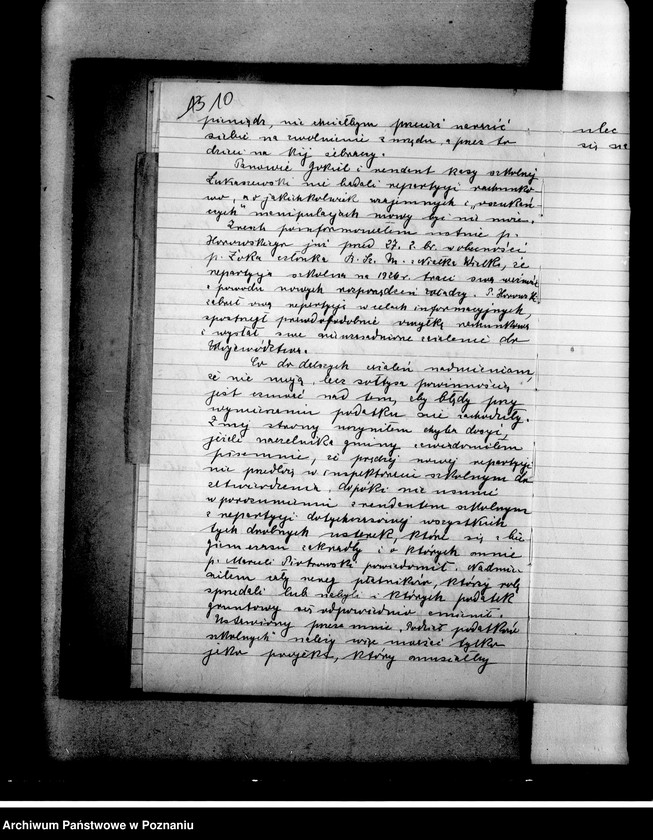 13 10
pieniądz, nie chciałbym przecież narazić
siebie na zwolnienie z urzędu a przez to
dzieci na kij żebraczy.
Panowie Gokiel i rendant kasy szkolnej
Łukaszewski nie badali repartycji rachunko-
wo, a o jakichkolwiek wzajemnych i „oszukań-
czych" manipulacjach mowy być nie może.
Zresztą poinformowałem ustnie p.
Horowskiego już przed 27. 2. br. w obecności
p. Żoka członka R. Sz. M. Wielka, że
repartycja szkolna na 1926 r. traci swą ważność
z powodu nowych rozporządzeń władzy. P. Horowsk.
zabrał ową repartycję w celach informacyjnych,
spostrzegł prawdopodobnie omyłkę rachunkową
i wysłał swe nieuzasadnione zażalenie do
Województwa.
Co do dalszych zażaleń nadmieniam,
że nie moją, lecz sołtysa powinnością
jest czuwać nad tem, aby błędy przy
wymierzeniu podatku nie zachodziły.
Z mej strony uczyniłem chyba dosyć,
jeżeli naczelnika gminy zawiadomiłem
piśmiennie, że prędzej nowej repartycji
nie przedłożę w inspektoracie szkolnym do
zatwierdzenia, dopóki nie usunie
w porozumieniu z rendantem szkolnym
z repartycji dotychczasowej wszystkich
tych drobnych usterek, które się z bie-
giem czasu zakradły i o których mnie
p. Marceli Piotrowski powiadomił. Nadmie-
niłem cały szereg płatników, którzy rolę
sprzedali lub nabyli i których podatek
gruntowy się odpowiednio zmienił.
Ustawiony przeze mnie „Podział podatków
szkolnych" należy więc uważać tylko
jako projekt, który musiałby
ulec
się na